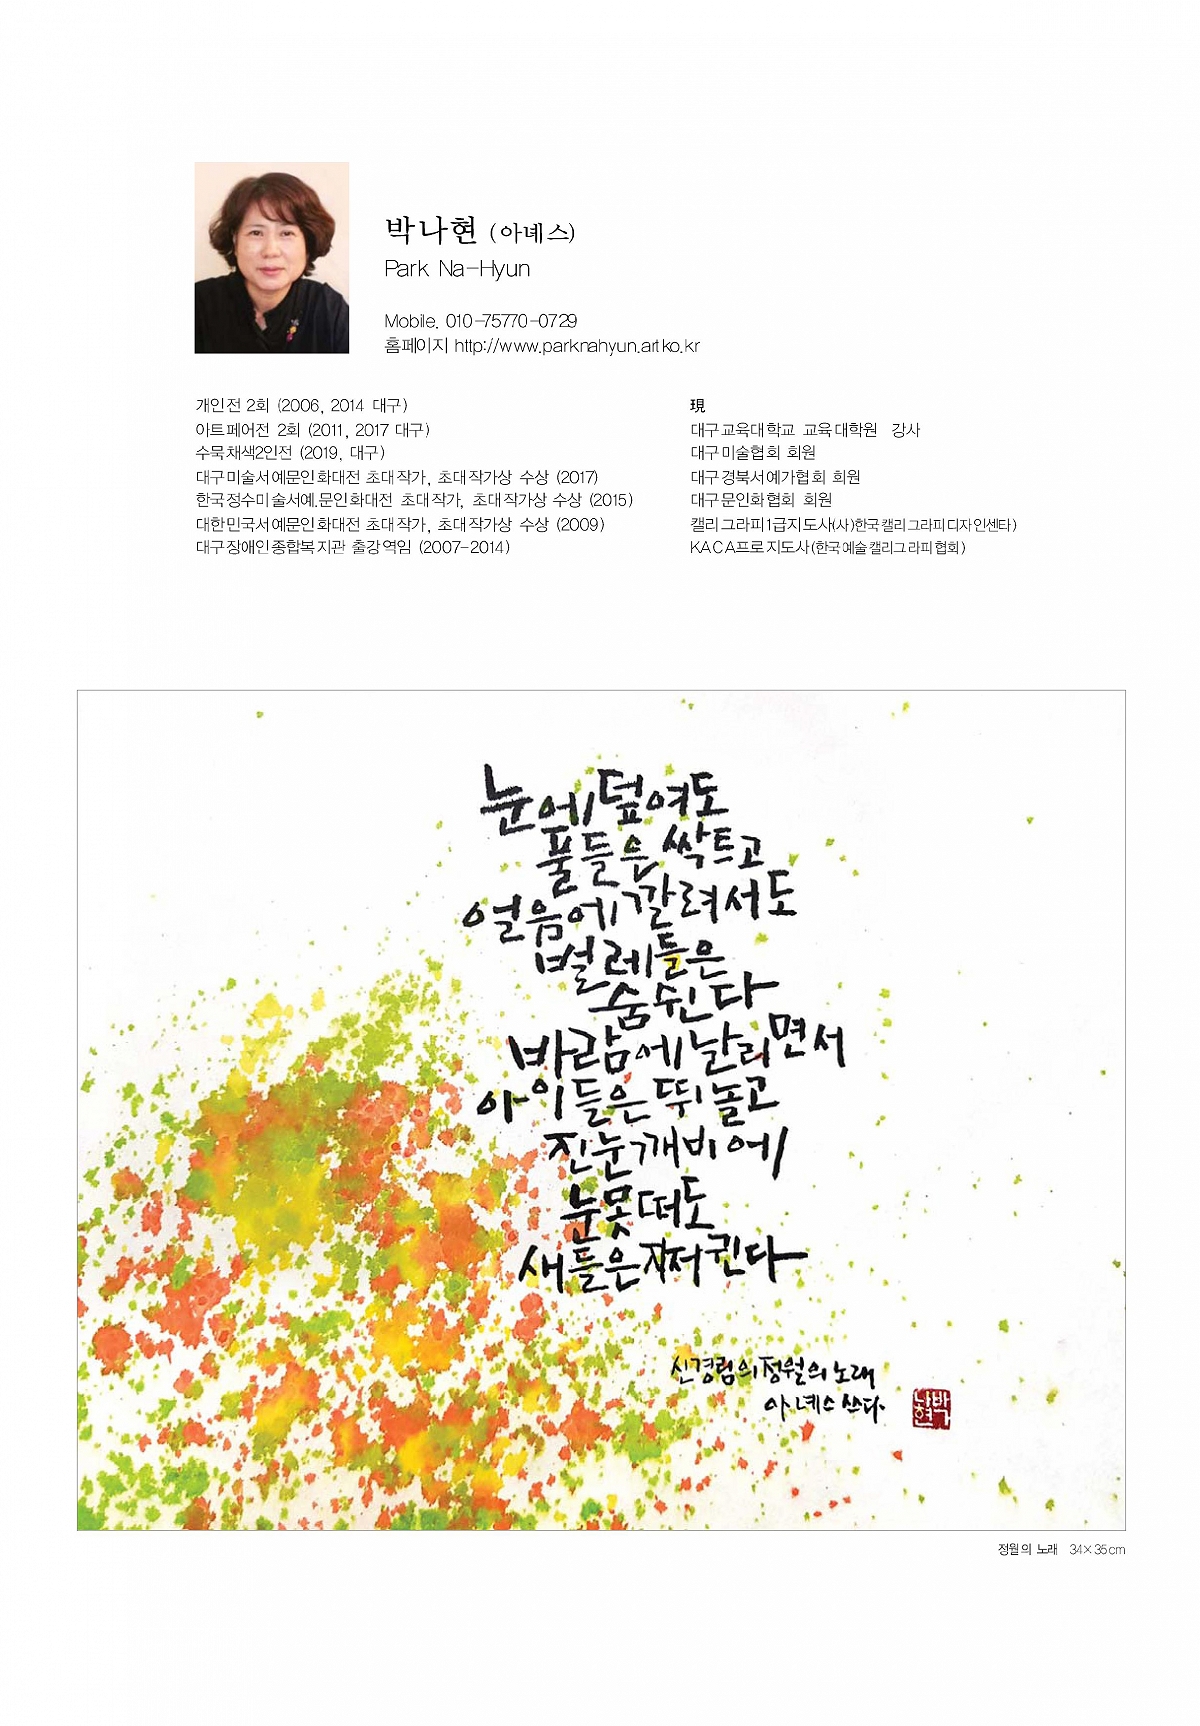 박나현 (아녜스)
Park Na-Hyun
Mobile. 010-75770-0729
홈페이지 http://www.parknahyun.artko.kr
개인전 2회 (2006, 2014 대구)
아트페어전 2회 (2011, 2017 대구)
수묵채색2인전 (2019, 대구)
대구미술서예문인화대전 초대작가, 초대작가상 수상 (2017)
한국정수미술서예.문인화대전 초대작가, 초대작가상 수상 (2015)
대한민국서예문인화대전 초대작가, 초대작가상 수상 (2009)
대구장애인종합복지관 출강역임 (2007-2014)
現
대구교육대학교 교육대학원 강사
대구미술협회 회원
대구경북서예가협회 회원
대구문인화협회 회원
캘리그라피1급지도사(사)한국캘리그라피디자인센타)
KACA프로지도사(한국예술캘리그라피협회)
눈에 덮여도
풀들은 싹트고
얼음에 깔려서도
벌레들은
숨쉰다
바람에 날리면서
아이들은 뛰놀고
진눈깨비에
눈못떠도
새들은 지저귄다
신경림의 정월의 노래
아녜스 쓰다
박나현
정월의 노래 34×35cm